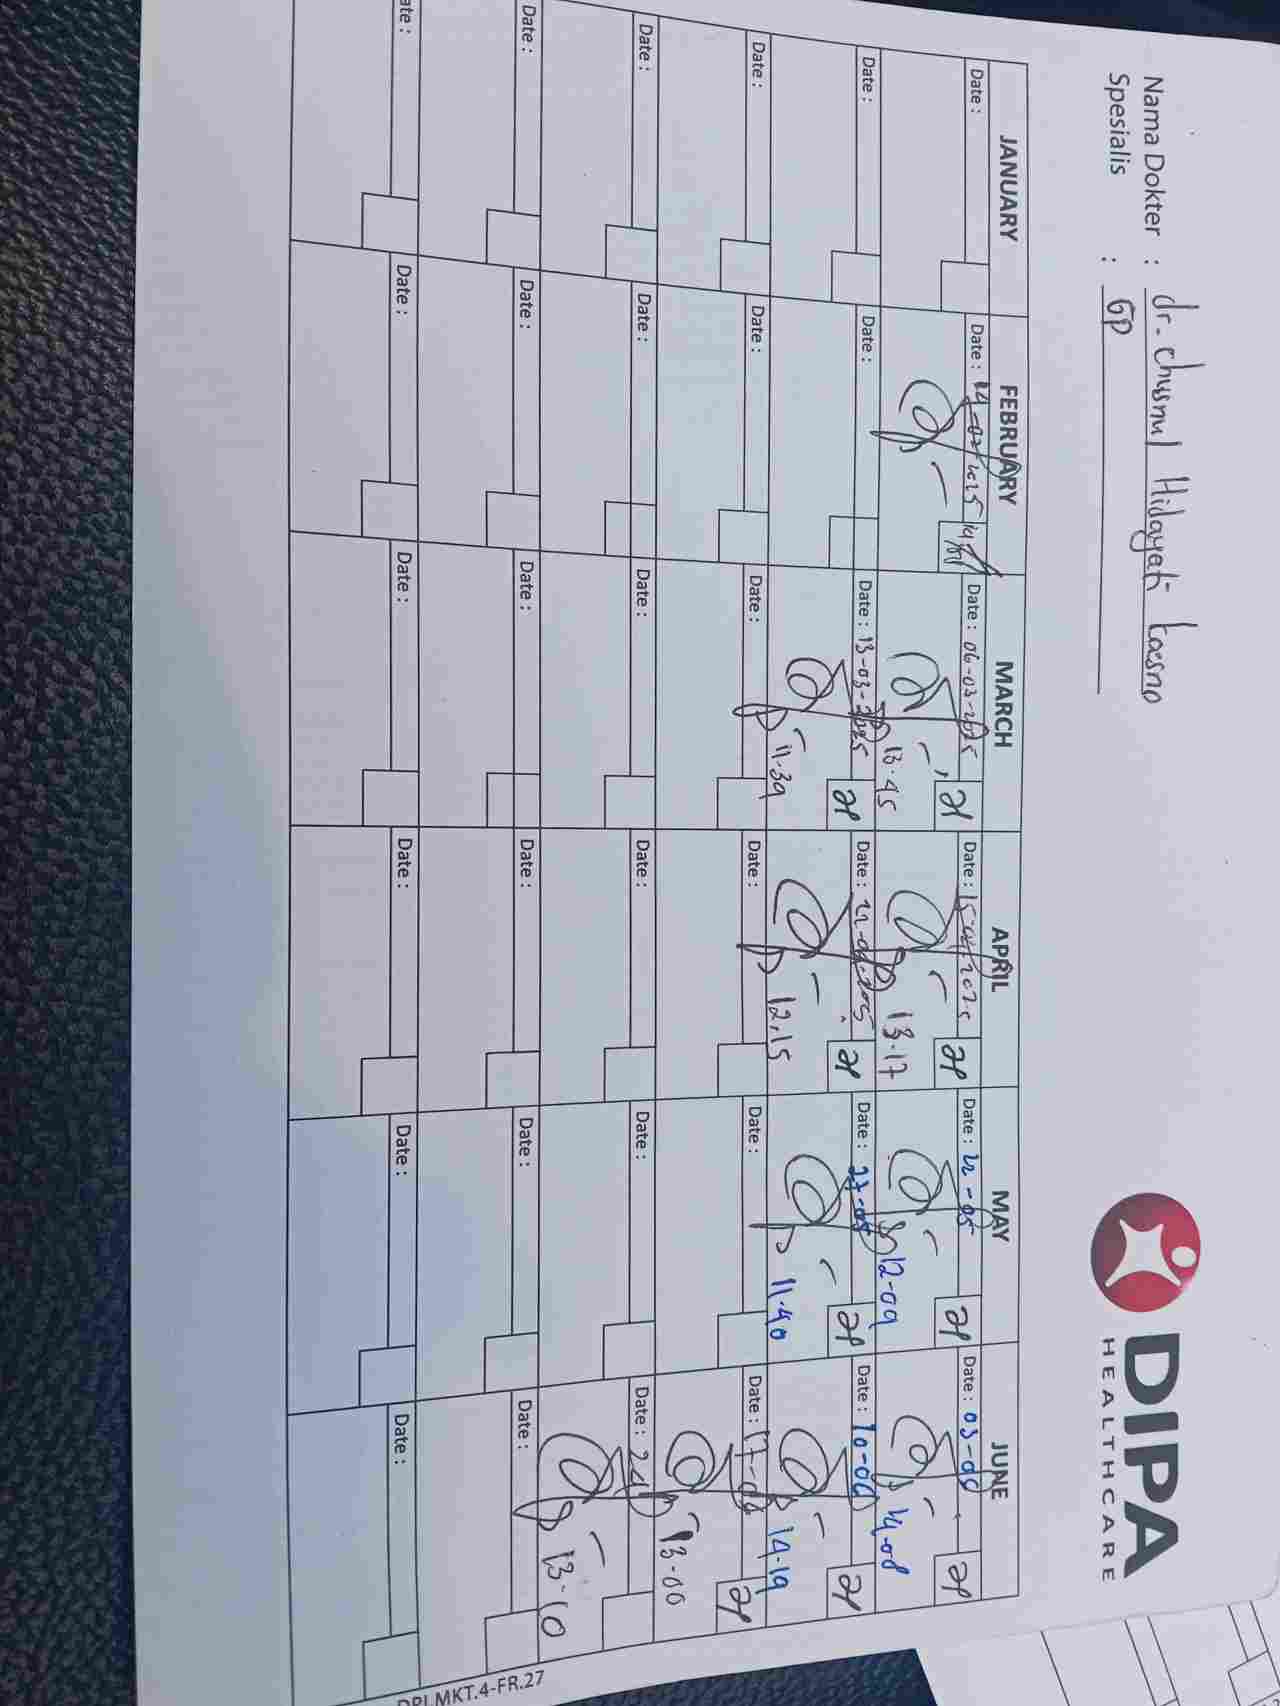 Nama Dokter : dr. Chusnul Hidayati Koesno
Spesialis : GP
DIPA
HEALTHCARE
JANUARY FEBRUARY MARCH APRIL MAY JUNE
Date : Date : 24-02-2025 Date : 06-03-2025 Date : 15-04-2025 Date : 22-05 Date : 03-06
13.45 13.17 12-09 14-08
Date : Date : Date : 13-03-2025 Date : 22-04-2025 Date : 27-05 Date : 10-06
11.39 12.15 11.40 14.19
Date : Date : Date : Date : Date : Date : 17-06
13-00
Date : Date : Date : Date : Date : Date : 24
13-10
Date : Date : Date : Date : Date : Date :
Date : Date : Date : Date : Date : Date :
DPI.MKT.4-FR.27